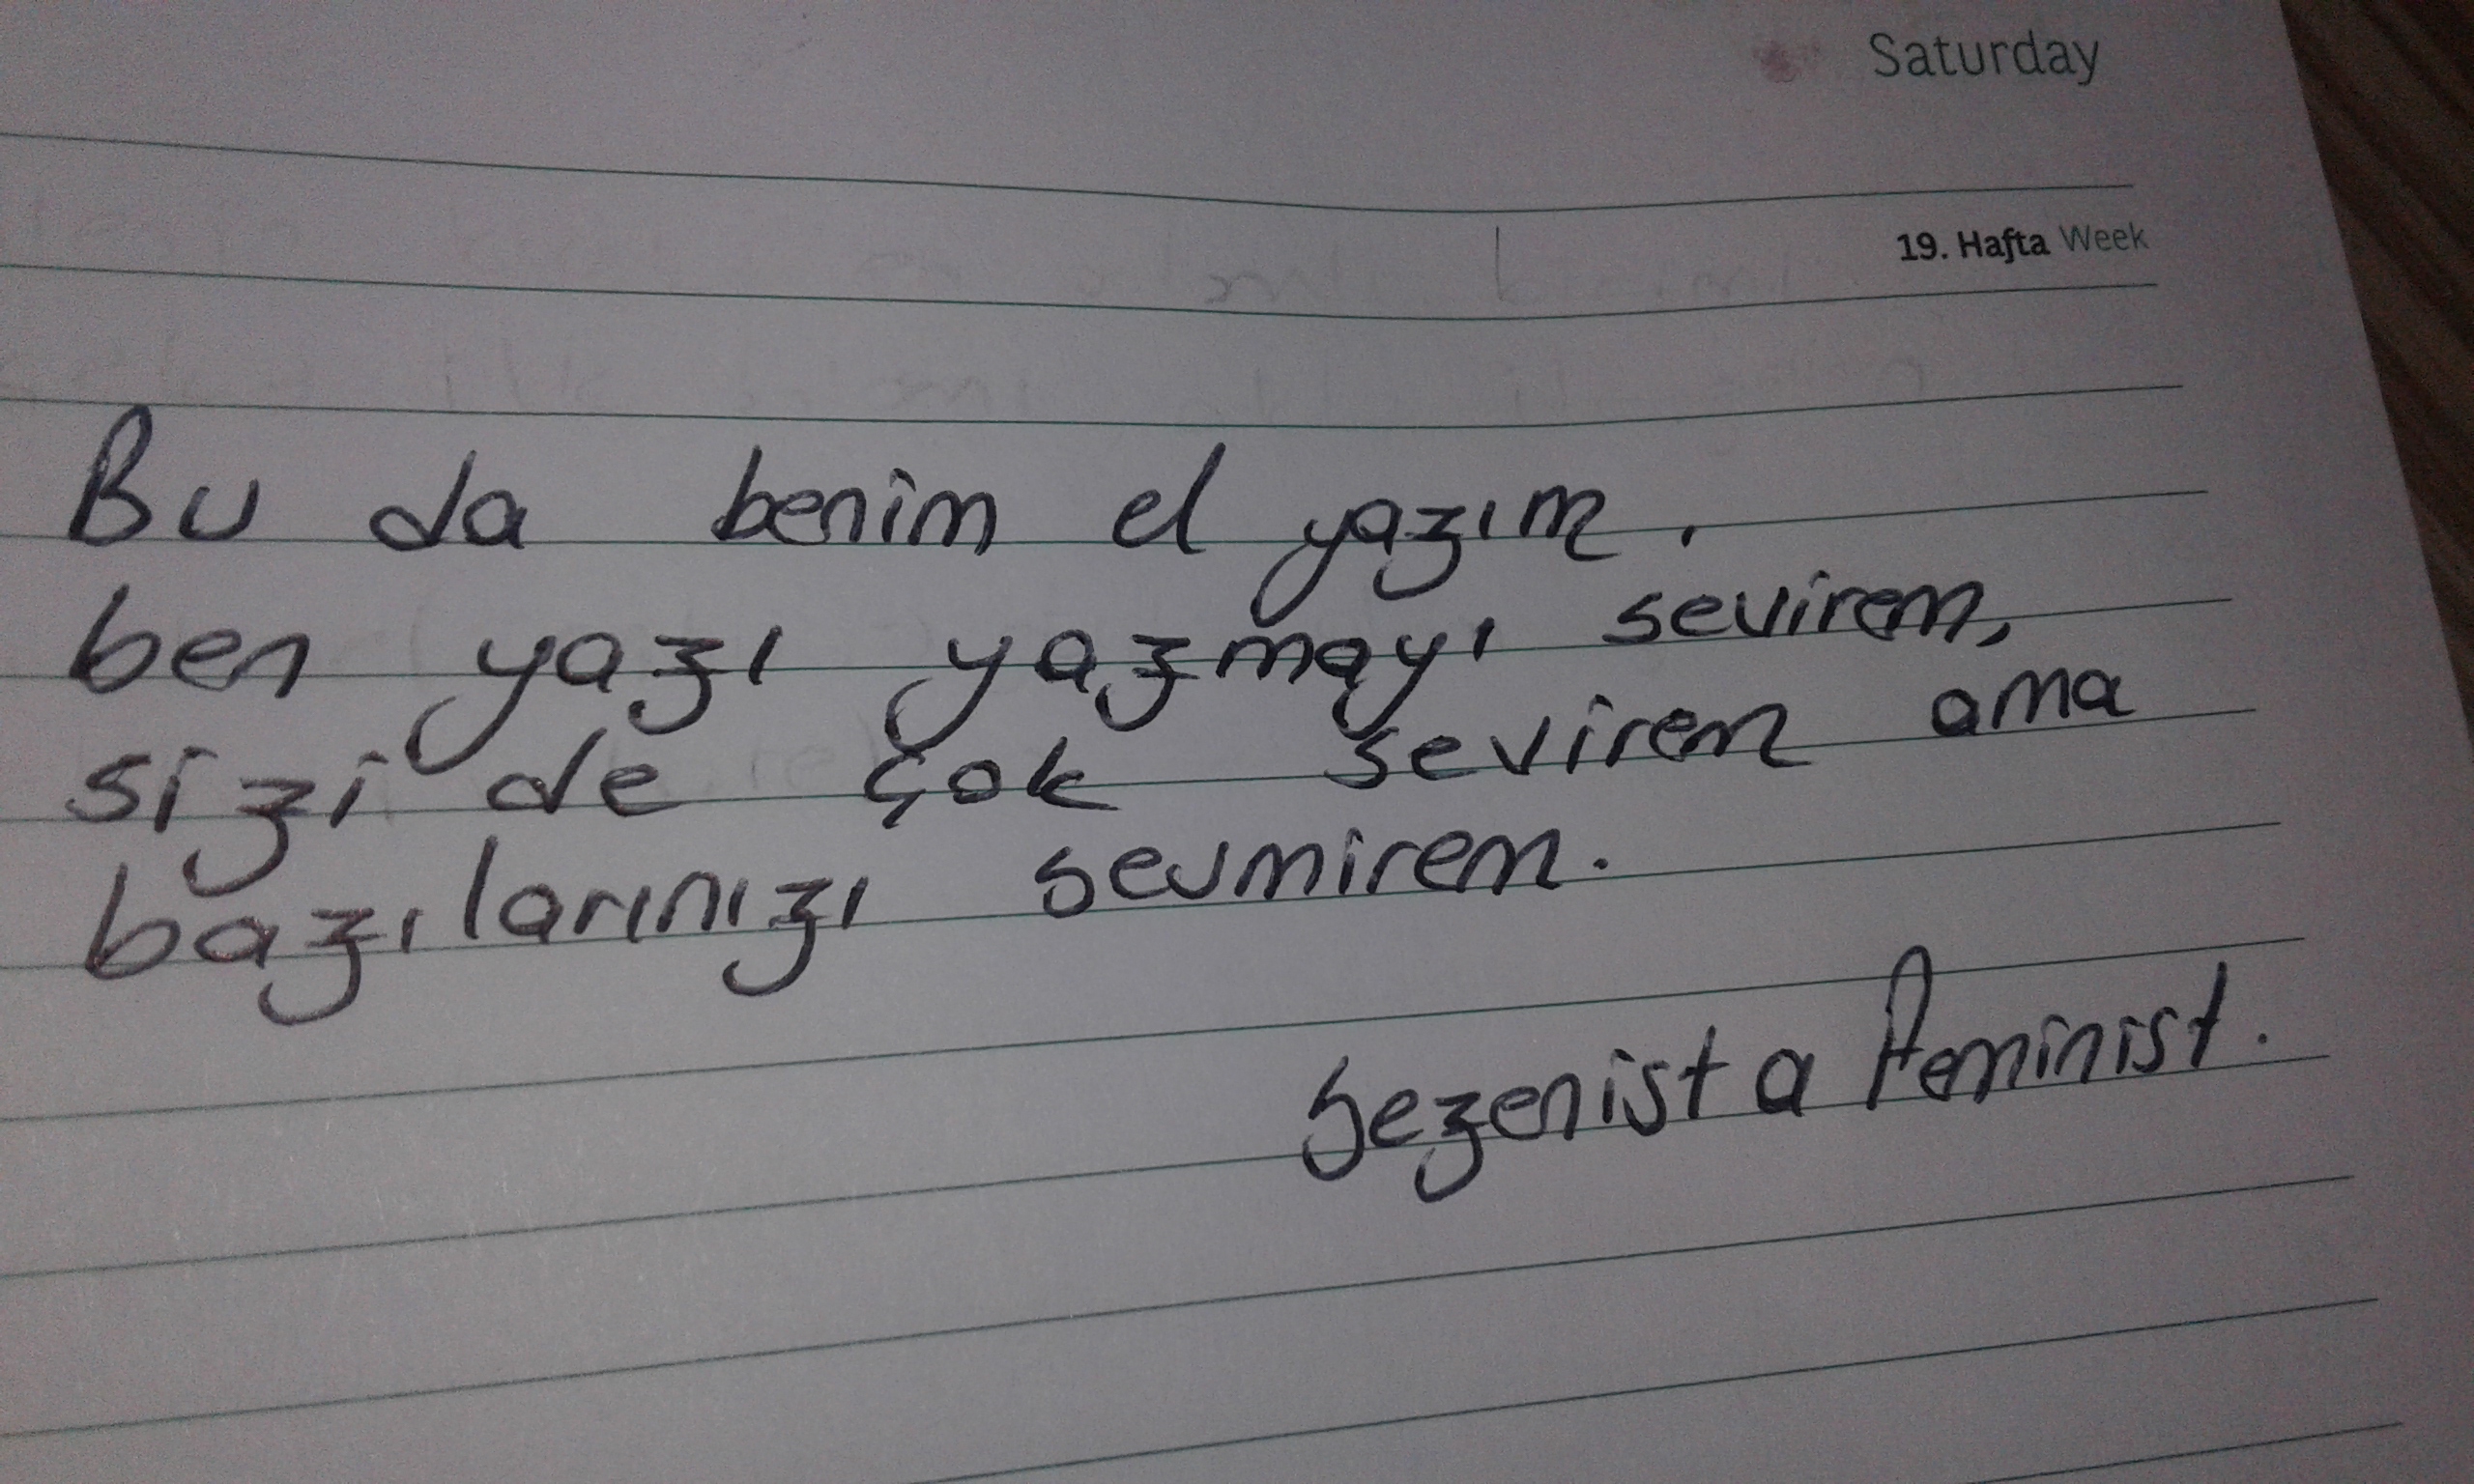 Saturday
19. Hafta Week
Bu da benim el yazım.
ben yazı yazmayı sevirem,
sizi de çok sevirem ama
bazılarınızı sevmirem.
Sezenist a feminist.